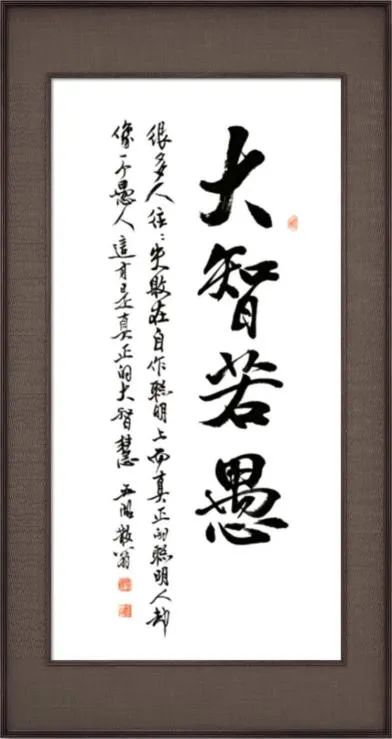 大智若愚
很多人往々失敗在自作聰明上而真正的聰明人却
像一个愚人這才是真正的大智慧 五 散翁